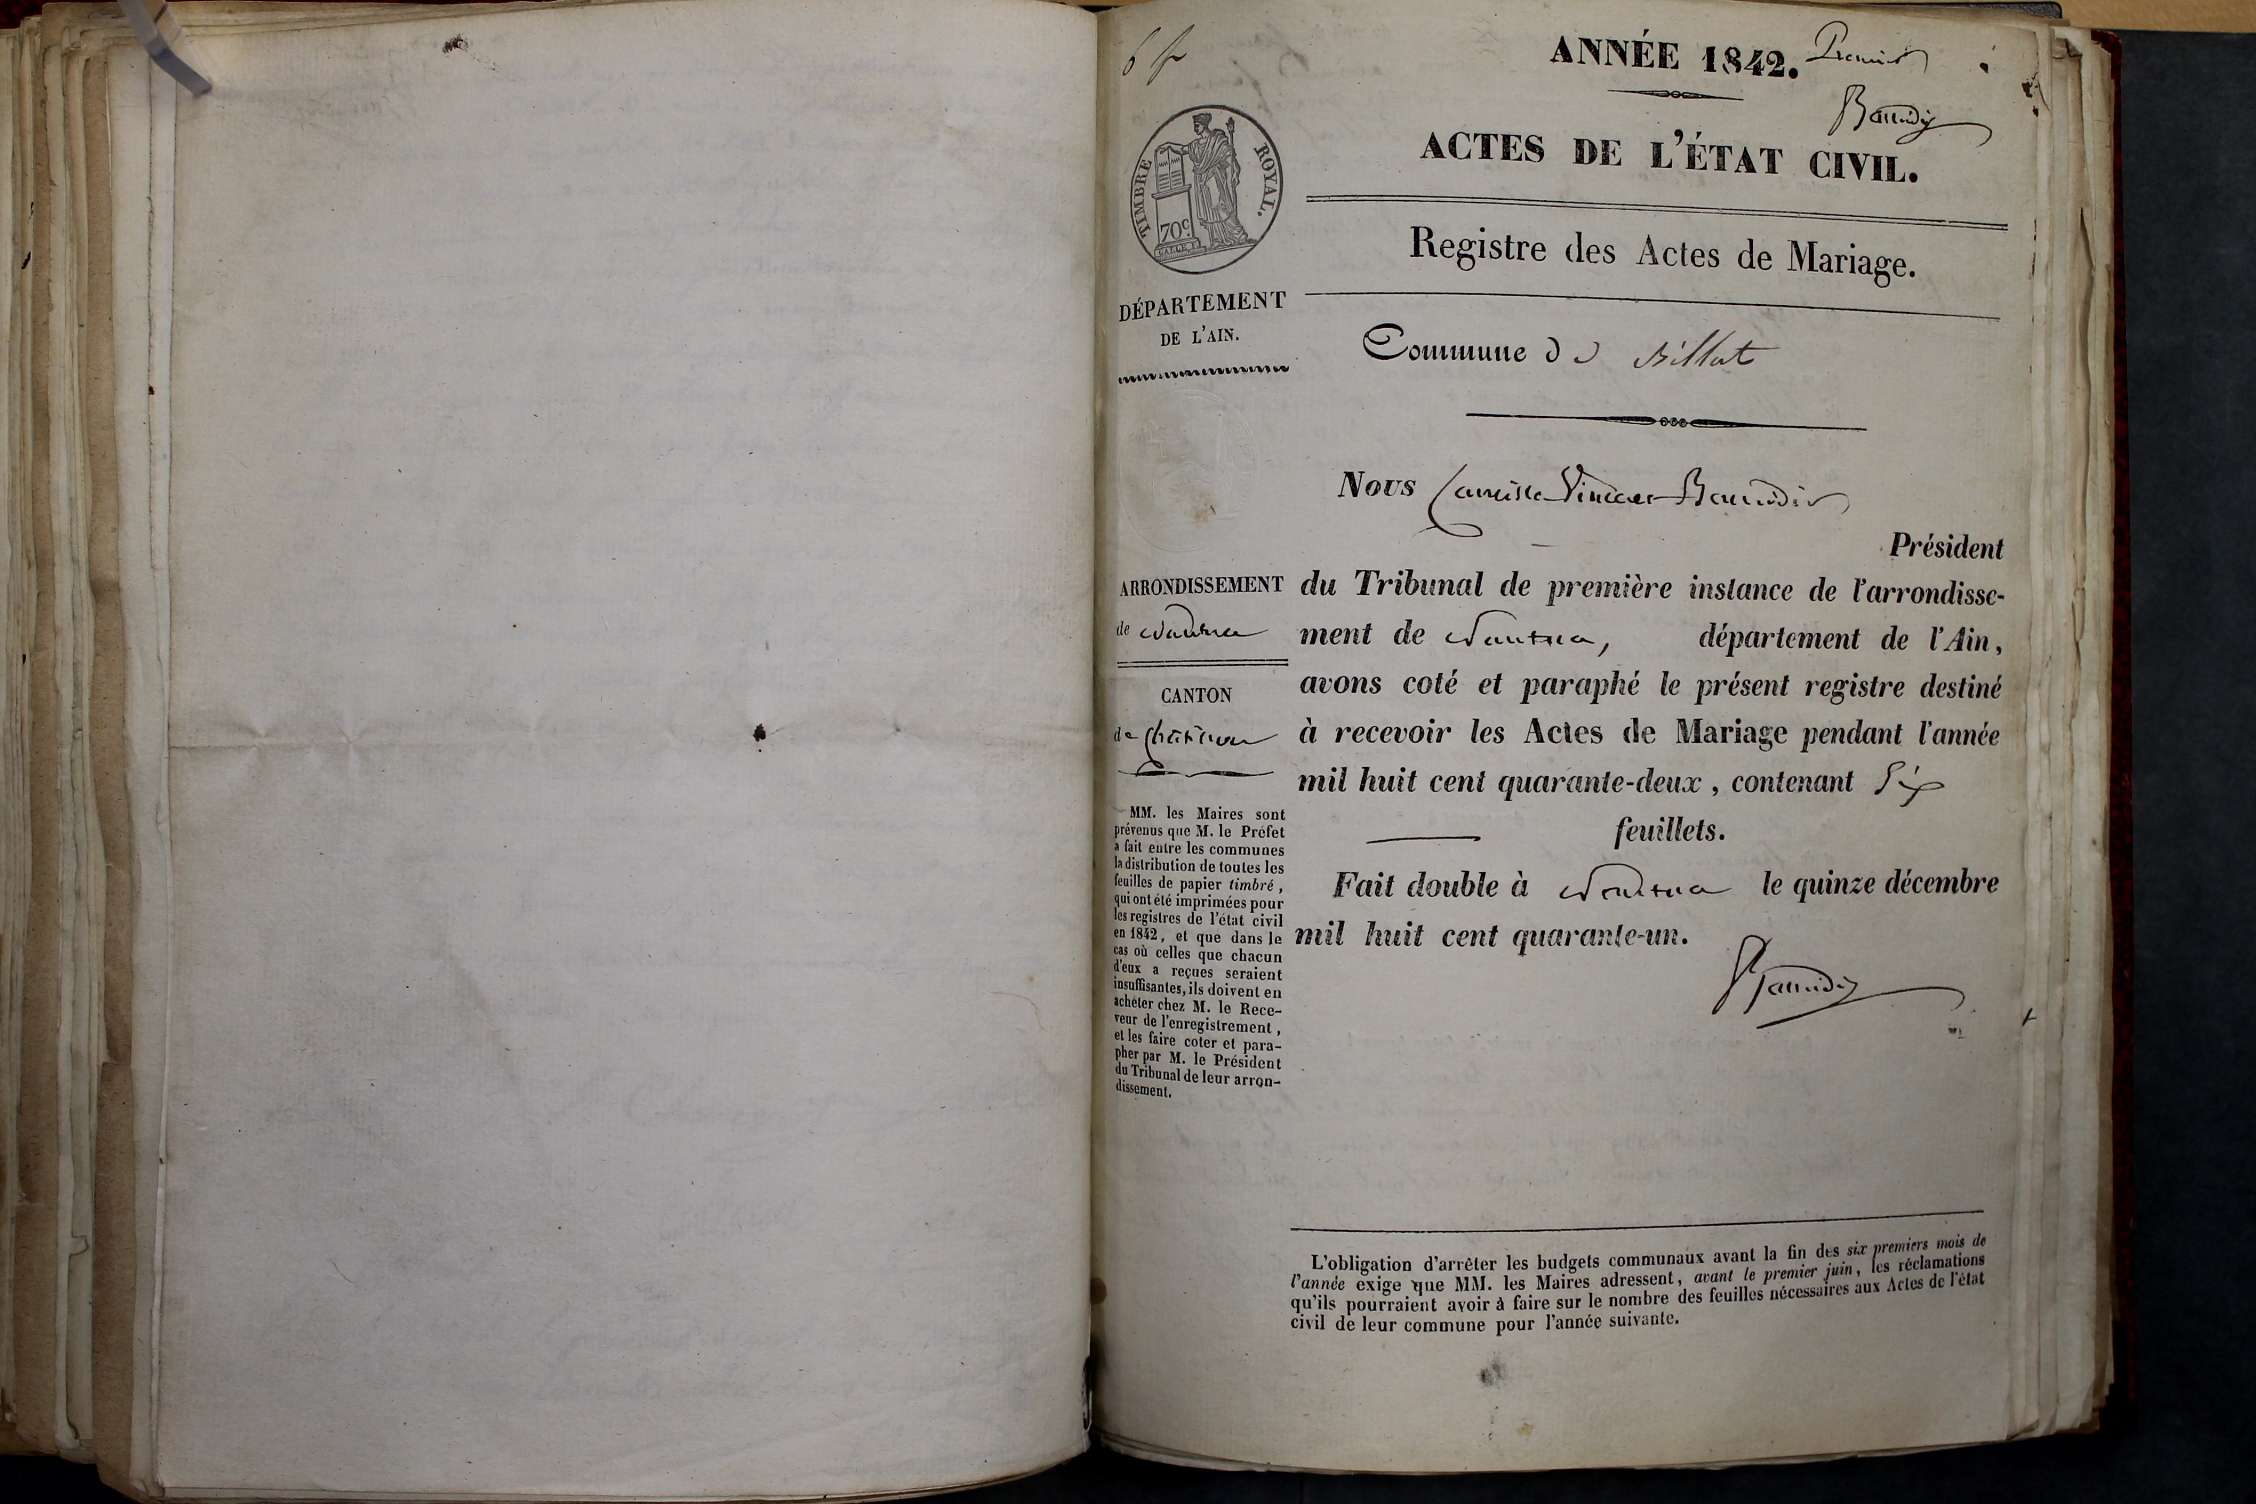 6 f
ANNÉE 1842. Premier
Baudin
ACTES DE L'ÉTAT CIVIL.
TIMBRE ROYAL.
70c
Registre des Actes de Mariage.
DÉPARTEMENT
DE L'AIN.
Commune de Billat
Nous Camille Vincent Baudin
Président
ARRONDISSEMENT
de Nantua
du Tribunal de première instance de l'arrondisse-
ment de Nantua, département de l'Ain,
avons coté et paraphé le présent registre destiné
CANTON
de Chatillon
à recevoir les Actes de Mariage pendant l'année
mil huit cent quarante-deux, contenant Six
feuillets.
Fait double à Nantua le quinze décembre
mil huit cent quarante-un.
Baudin
MM. les Maires sont
prévenus que M. le Préfet
a fait entre les communes
la distribution de toutes les
feuilles de papier timbré,
qui ont été imprimées pour
les registres de l'état civil
en 1842, et que dans le
cas où celles que chacun
d'eux a reçues seraient
insuffisantes, ils doivent en
acheter chez M. le Rece-
veur de l'enregistrement,
et les faire coter et para-
pher par M. le Président
du Tribunal de leur arron-
dissement.
L'obligation d'arrêter les budgets communaux avant la fin des six premiers mois de
l'année exige que MM. les Maires adressent, avant le premier juin, les réclamations
qu'ils pourraient avoir à faire sur le nombre des feuilles nécessaires aux Actes de l'état
civil de leur commune pour l'année suivante.